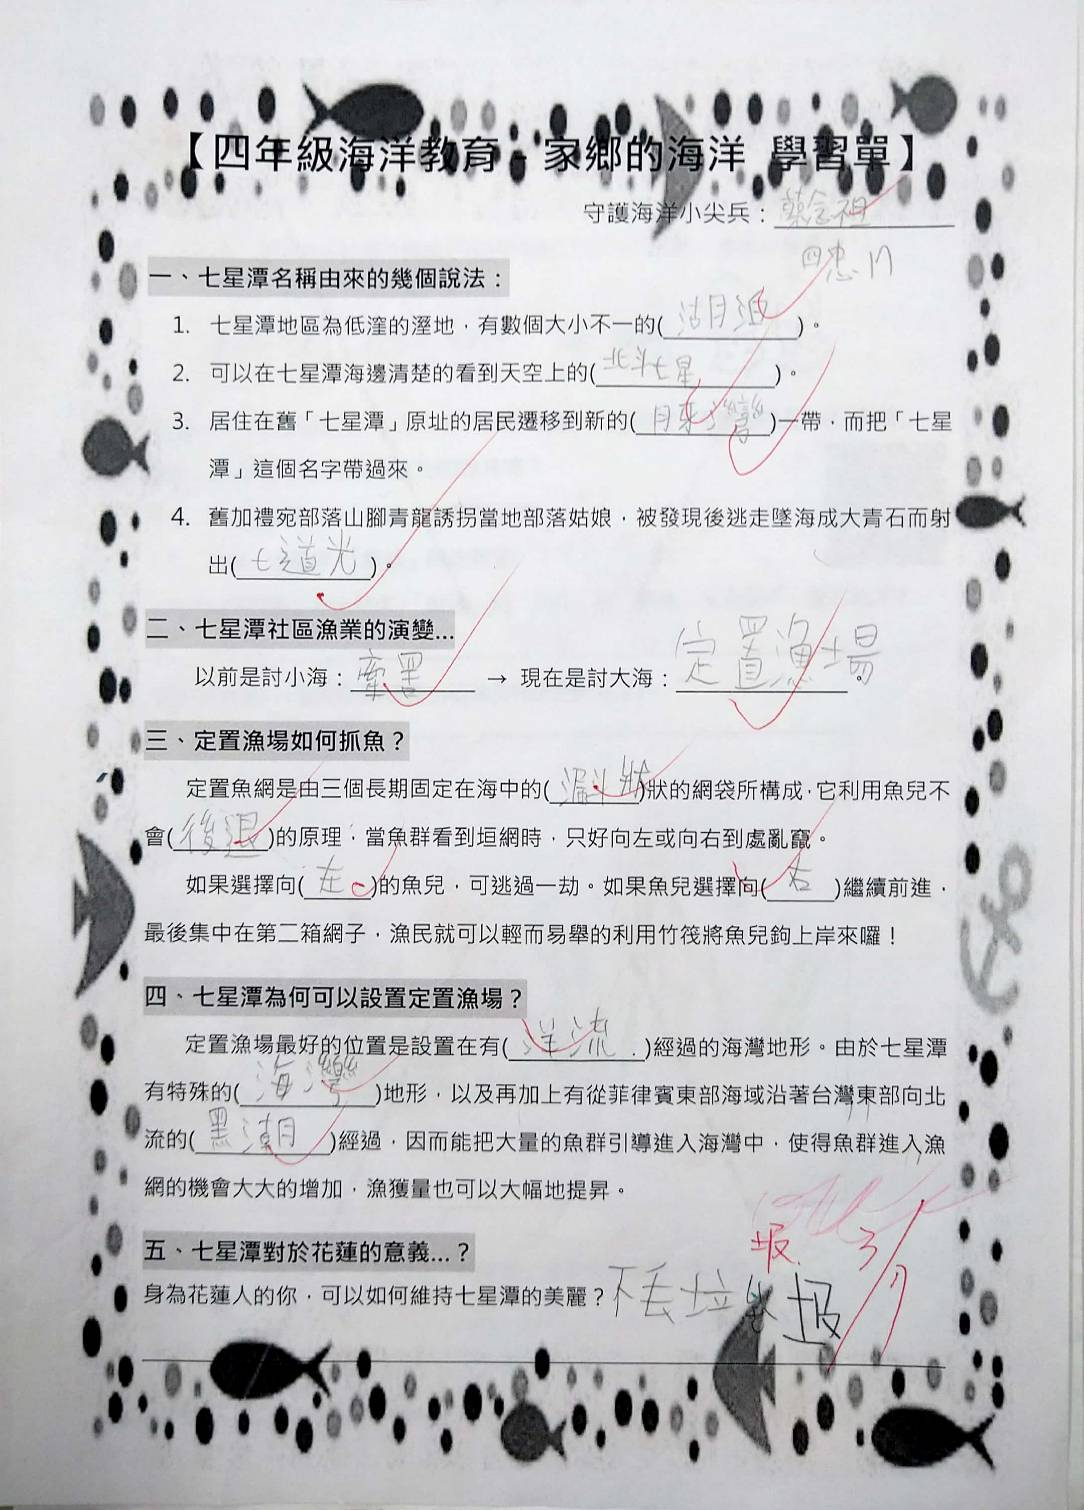 【四年級海洋教育 - 家鄉的海洋 學習單】
守護海洋小尖兵：
四忠17
一、七星潭名稱由來的幾個說法：
1. 七星潭地區為低窪的溼地，有數個大小不一的(湖月沼)。
2. 可以在七星潭海邊清楚的看到天空上的(北斗七星)。
3. 居住在舊「七星潭」原址的居民遷移到新的(月牙灣)一帶，而把「七星
潭」這個名字帶過來。
4. 舊加禮宛部落山腳青龍誘拐當地部落姑娘，被發現後逃走墜海成大青石而射
出(七道光)。
二、七星潭社區漁業的演變...
以前是討小海：牽罟 → 現在是討大海：定置漁場。
三、定置漁場如何抓魚？
定置魚網是由三個長期固定在海中的(漏斗狀)狀的網袋所構成，它利用魚兒不
會(後退)的原理，當魚群看到垣網時，只好向左或向右到處亂竄。
如果選擇向(左)的魚兒，可逃過一劫。如果魚兒選擇向(右)繼續前進，
最後集中在第二箱網子，漁民就可以輕而易舉的利用竹筏將魚兒鉤上岸來囉！
四、七星潭為何可以設置定置漁場？
定置漁場最好的位置是設置在有(洋流)經過的海灣地形。由於七星潭
有特殊的(海灣)地形，以及再加上有從菲律賓東部海域沿著台灣東部向北
流的(黑潮)經過，因而能把大量的魚群引導進入海灣中，使得魚群進入漁
網的機會大大的增加，漁獲量也可以大幅地提昇。
五、七星潭對於花蓮的意義...？
圾
身為花蓮人的你，可以如何維持七星潭的美麗？不丟垃圾